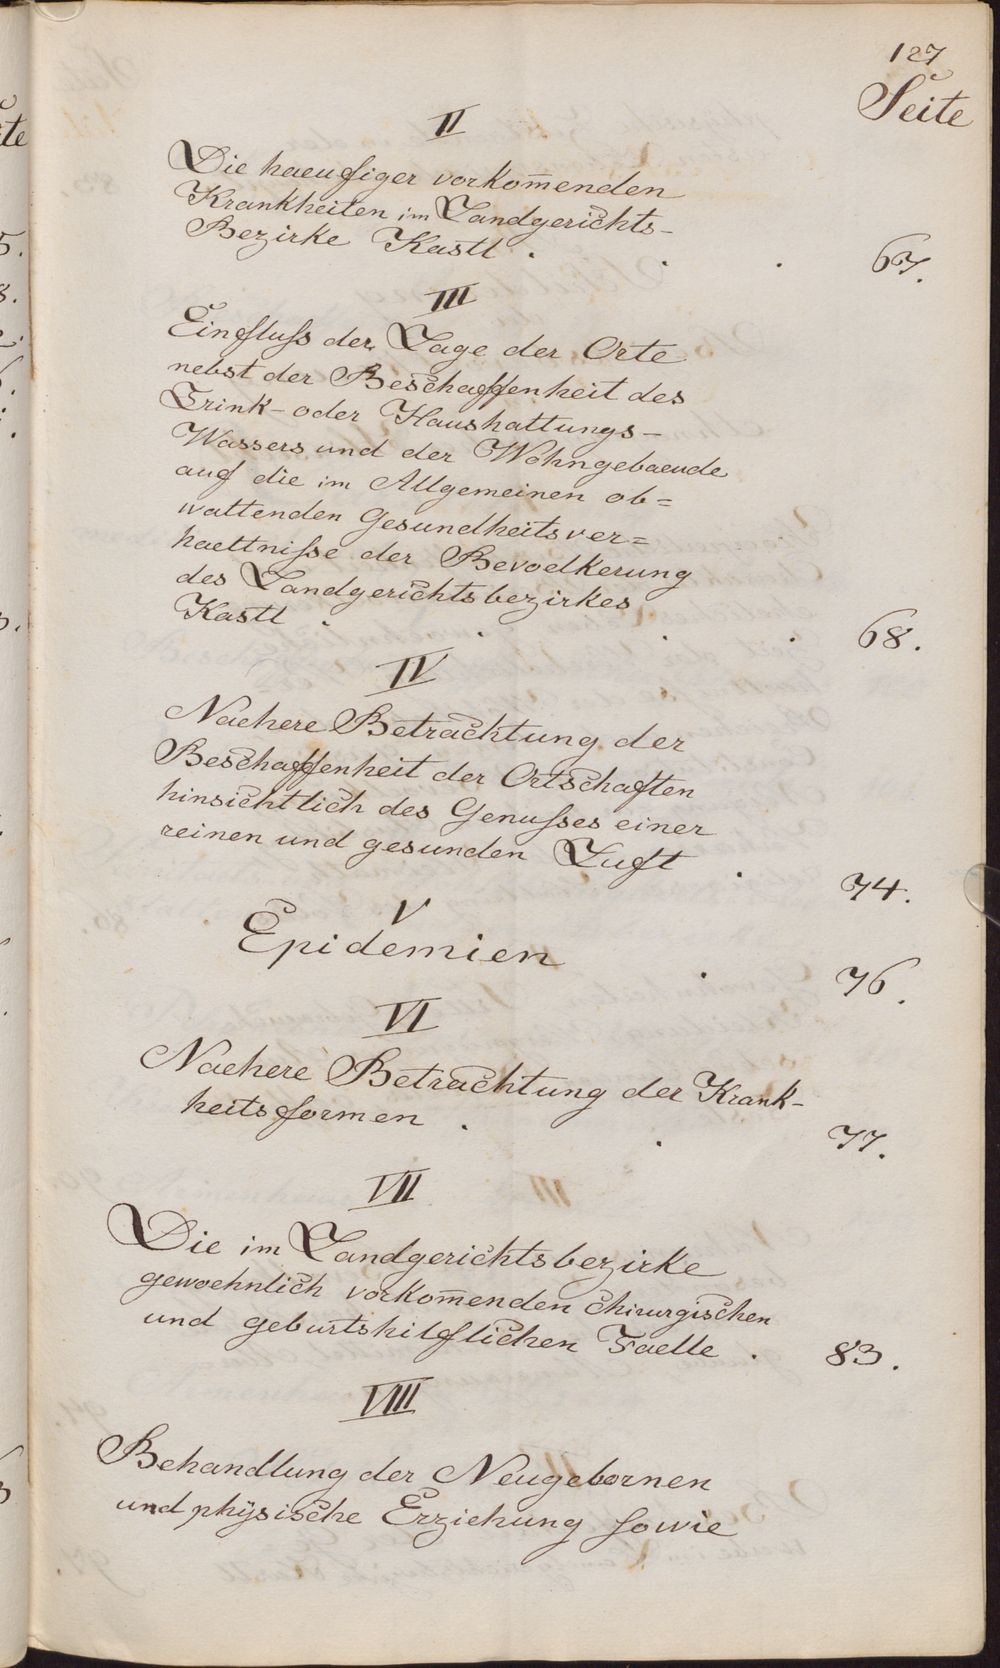 127
Seite
II
Die haeufiger vorkom̄enden
Krankheiten im Landgerichts-
Bezirke Kastl . . . 67.
III
Einfluſs der Lage der Orte
nebst der Beschaffenheit des
Trink- oder Haushaltungs-
Wassers und der Wohngebaeude
auf die im Allgemeinen ob=
waltenden Gesundheitsver=
haeltniſse der Bevoelkerung
des Landgerichtsbezirkes
Kastl . . . . 68.
IV
Naehere Betrachtung der
Beschaffenheit der Ortschaften
hinsichtlich des Genuſses einer
reinen und gesunden Luft . 74.
V
Epidemien . 76.
VI
Naehere Betrachtung der Krank-
heitsformen . . 77.
VII
Die im Landgerichtsbezirke
gewoehnlich vorkom̄enden chirurgischen
und geburtshilflichen Faelle . 83.
VIII
Behandlung der Neugebornen
und phÿsische Erziehung sowie